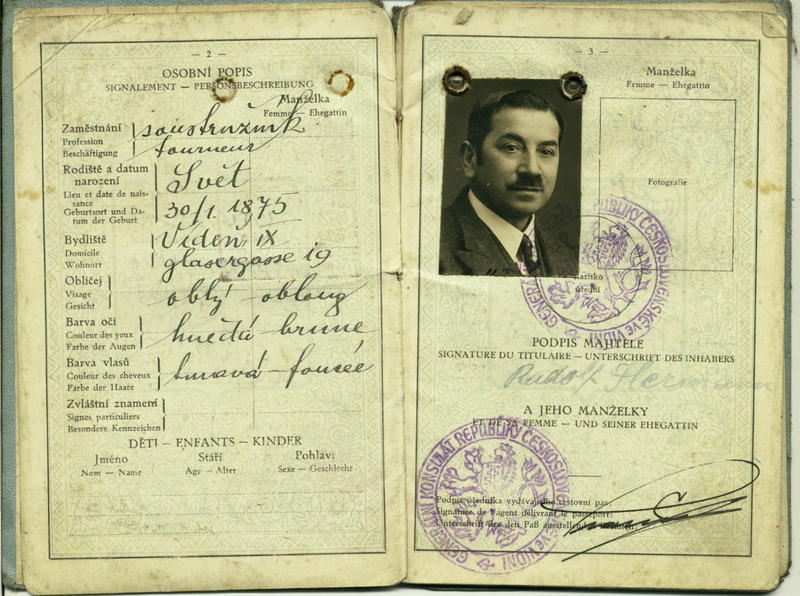 — 2 —
OSOBNÍ POPIS
SIGNALEMENT — PERSONSBESCHREIBUNG
Manželka
Femme — Ehegattin
Zaměstnání
Profession
Beschäftigung
soustružník
tourneur
Rodiště a datum
narození
Lieu et date de nais-
sance
Geburtsort und Da-
tum der Geburt
Svět
30/1. 1875
Bydliště
Domicile
Wohnort
Vídeň, IX
glasergasse 19
Obličej
Visage
Gesicht
oblý – oblong
Barva očí
Couleur des yeux
Farbe der Augen
hnědá – brune
Barva vlasů
Couleur des cheveux
Farbe der Haare
tmavá – foncée
Zvláštní znamení
Signes particuliers
Besondere Kennzeichen
DĚTI — ENFANTS — KINDER
Jméno Stáří Pohlaví
Nom — Name Age — Alter Sexe — Geschlecht
— 3 —
Manželka
Femme — Ehegattin
Fotografie
Razítko
úřední
GENERÁLNÍ KONSULÁT REPUBLIKY ČESKOSLOVENSKÉ VE VÍDNI
PODPIS MAJITELE
SIGNATURE DU TITULAIRE — UNTERSCHRIFT DES INHABERS
Rudolf Hermann
A JEHO MANŽELKY
ET DE SA FEMME — UND SEINER EHEGATTIN
GENERÁLNÍ KONSULÁT REPUBLIKY ČESKOSLOVENSKÉ VE VÍDNI
Podpis úředníka vydávajícího cestovní pas:
Signature de l'agent délivrant le passeport:
Unterschrift des den Paß ausstellenden